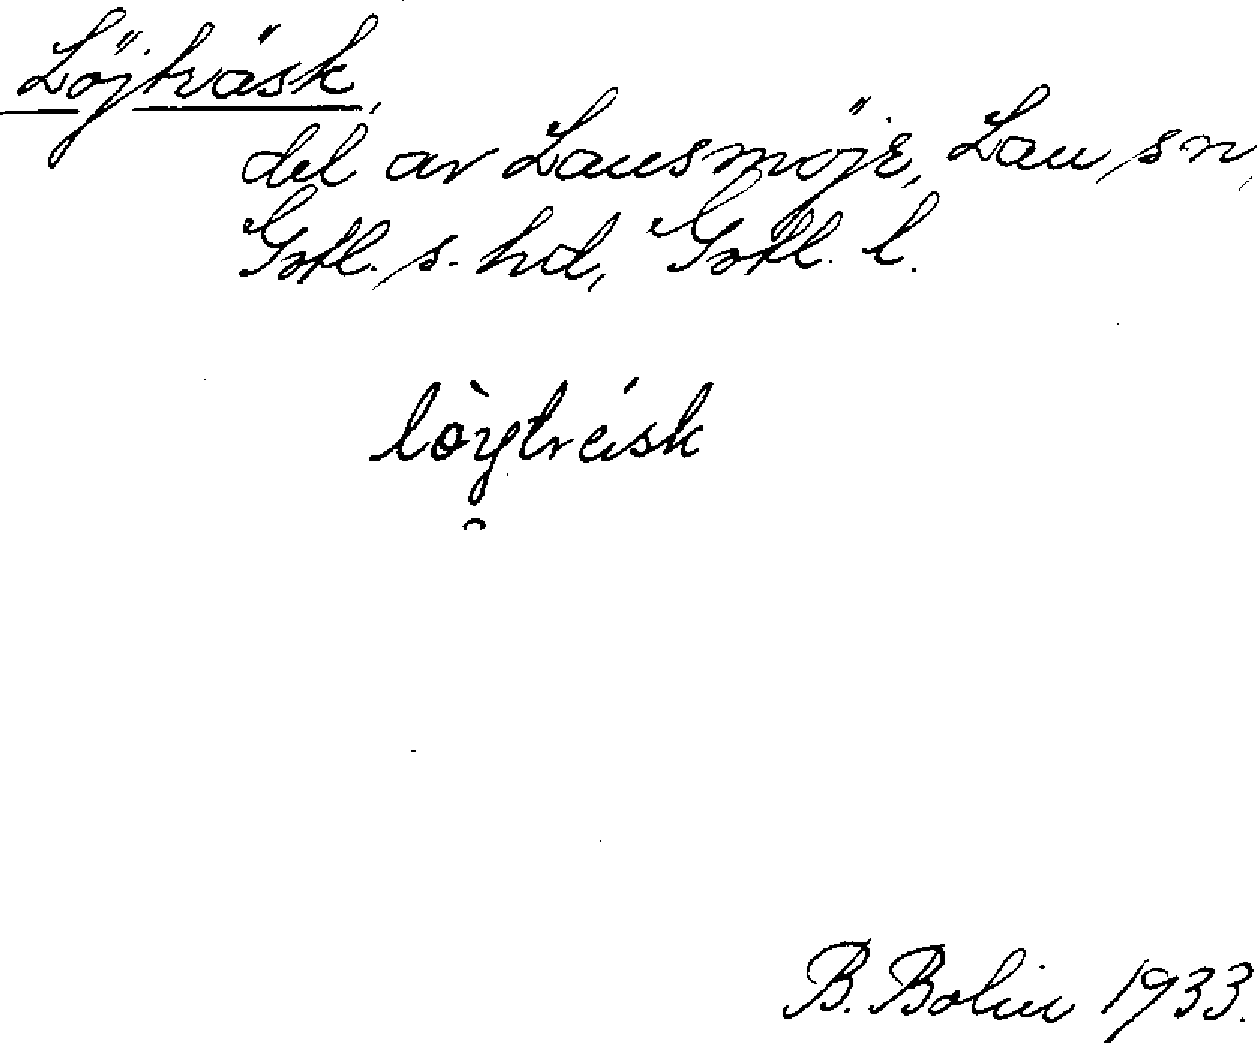 Löjträsk,
del av Lausmöje, Lau sn,
Gotl. s. hd, Gotl. l.
lòy̯tréisk
B. Bolin 1933.